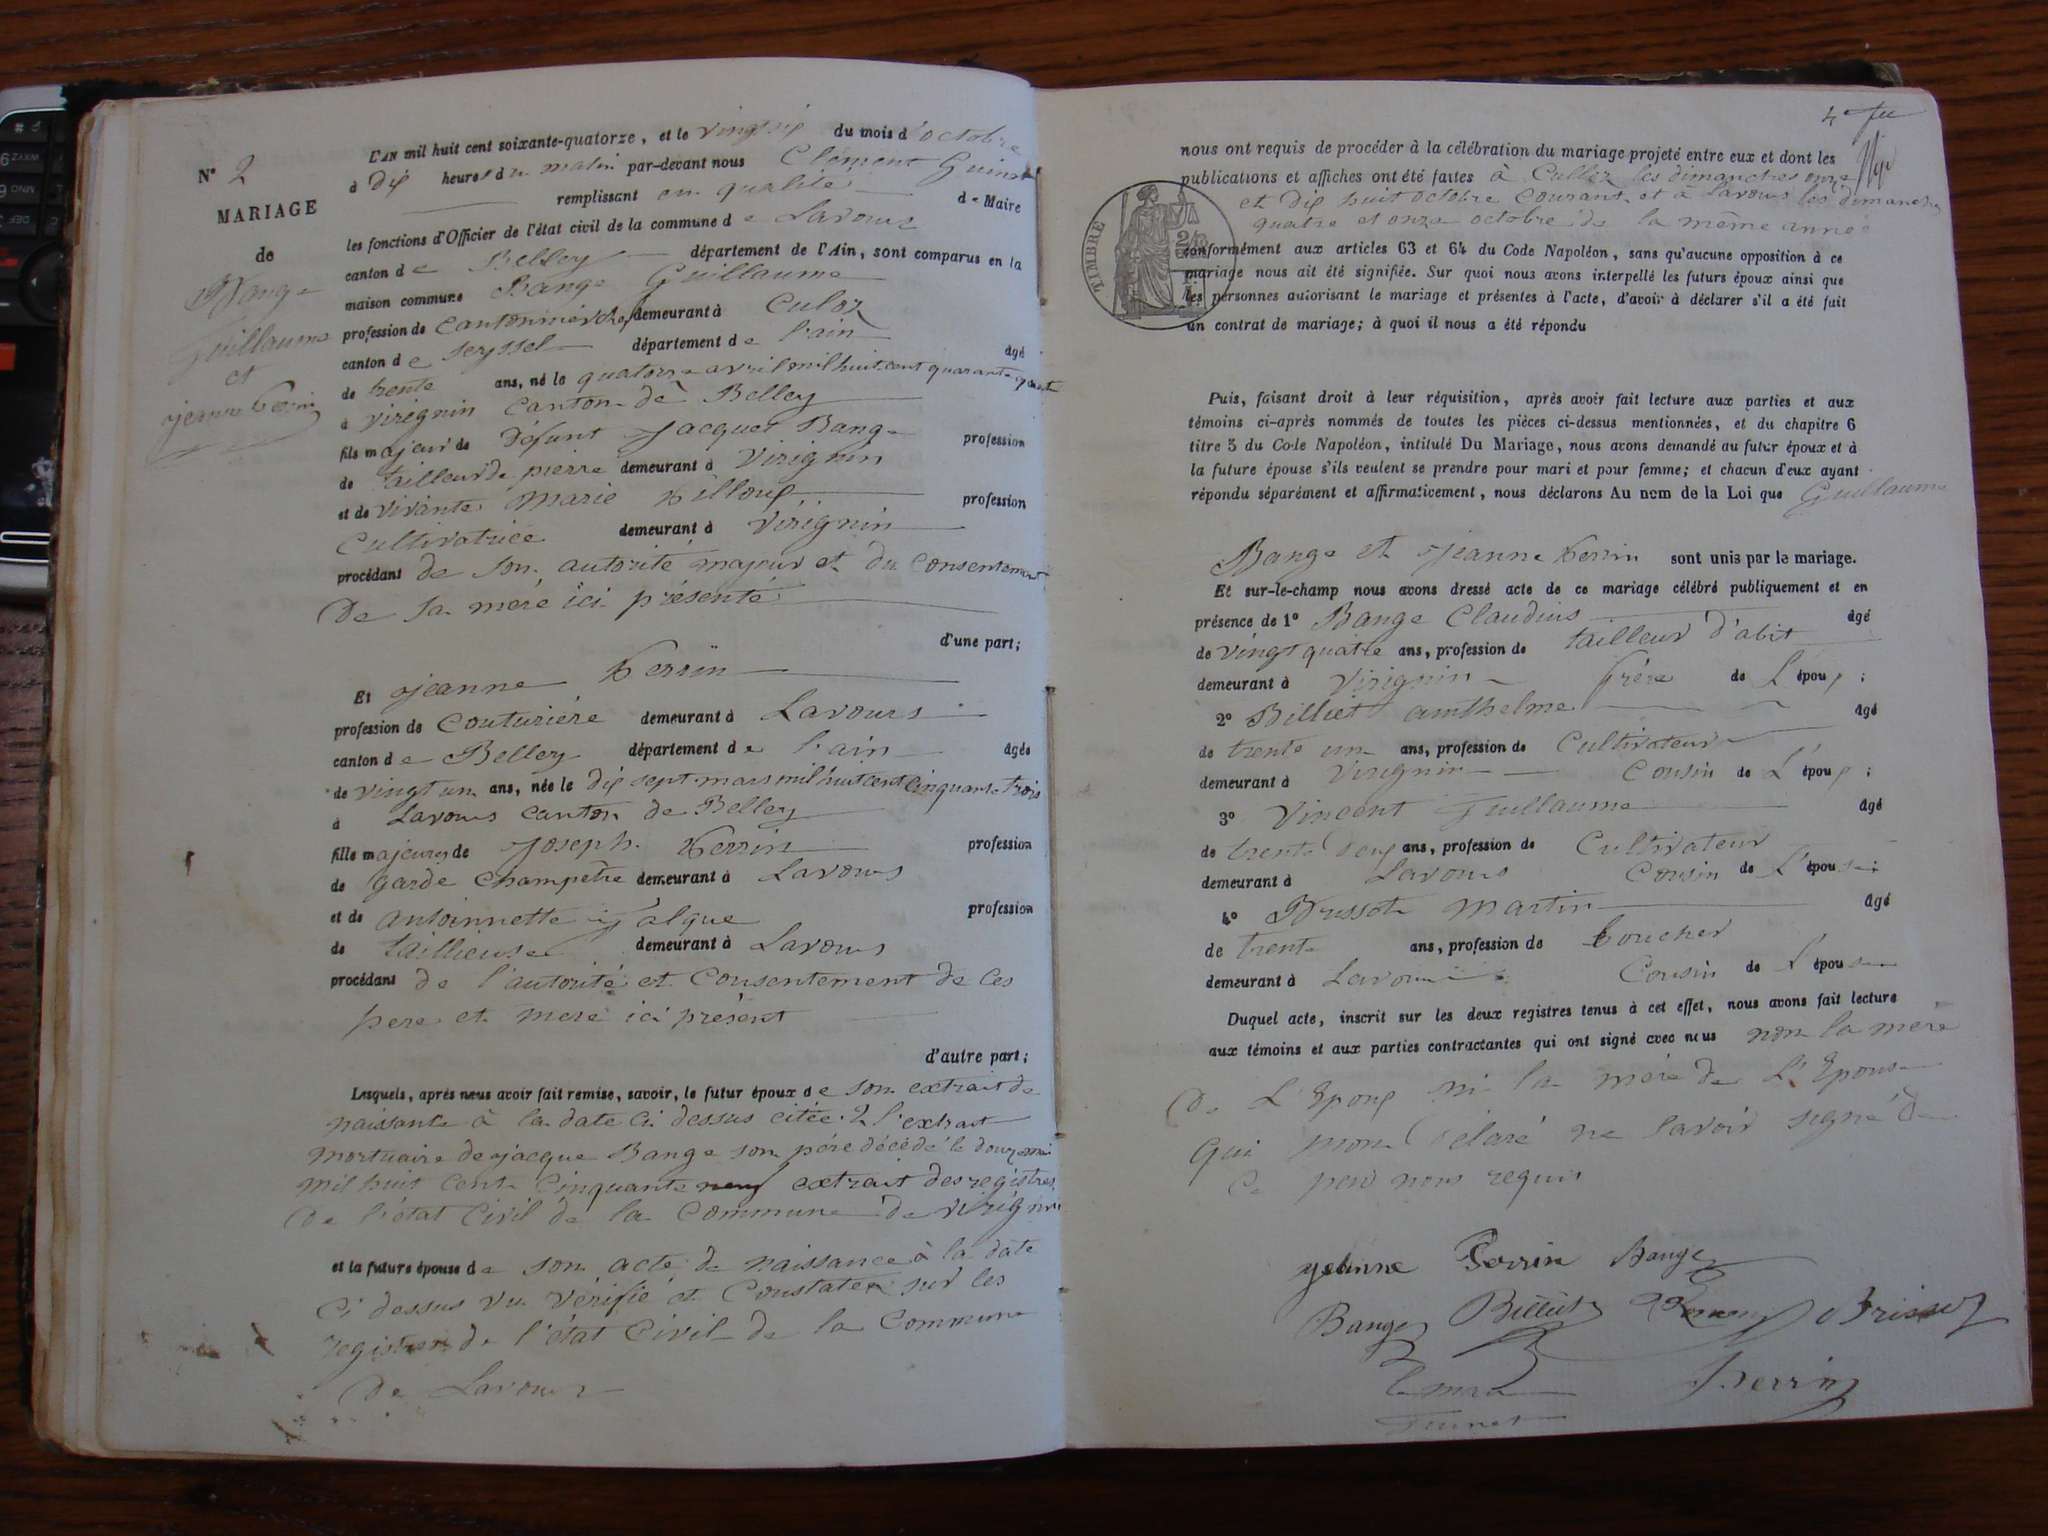 N° 2
MARIAGE
de
Bange
Guillaume
et
jeanne Perrin
L'AN mil huit cent soixante-quatorze, et le vingt six du mois d'octobre
à dix heures du matin par-devant nous Clément Guinet
remplissant en qualité de Maire
les fonctions d'Officier de l'état civil de la commune de Lavours
canton de Belley département de l'Ain, sont comparus en la
maison commune Bange Guillaume
profession de Cantonnier chef demeurant à Culoz
canton de Seyssel département de l'ain âgé
de trente ans, né le quatorze avril mil huit cent quarante quatre
à virignin Canton de Belley
fils majeur de Défunt Jacques Bange profession
de tailleur de pierre demeurant à Virignin
et de vivante Marie profession
Cultivatrice demeurant à Virignin
procédant de son autorité majeur et du consentement
De sa mère ici présente
d'une part;
Et jeanne Perrin
profession de Couturière demeurant à Lavours
canton de Belley département de l'ain âgée
de vingt un ans, née le dix sept mars mil huit cent cinquante trois
à Lavours canton de Belley
fille majeure de Joseph Perrin profession
de garde Champetre demeurant à Lavours
et de antoinnette Falque profession
de tailleuse demeurant à Lavours
procédant de l'autorité et Consentement de Ces
pere et mere ici présent
d'autre part;
Lesquels, après nous avoir fait remise, savoir, le futur époux de son extrait de
naissante à la date Ci dessus citée 2 l'extrait
mortuaire de jacque Bange son père décédé le douze mai
mil huit Cent Cinquante neuf extrait des registres
De l'état Civil de la Commune de virignin
et la future épouse de son acte de naissance à la date
Ci dessus vu vérifié et Constater sur les
registres de l'état Civil de la Commune
De Lavours
4e
nous ont requis de procéder à la célébration du mariage projeté entre eux et dont les
publications et affiches ont été faites à Culloz les dimanches onze
et Dix huit octobre Courant et à Lavours les dimanches
quatre et onze octobre de la même année
TIMBRE
conformément aux articles 63 et 64 du Code Napoléon, sans qu'aucune opposition à ce
mariage nous ait été signifiée. Sur quoi nous avons interpellé les futurs époux ainsi que
les personnes autorisant le mariage et présentes à l'acte, d'avoir à déclarer s'il a été fait
un contrat de mariage; à quoi il nous a été répondu
Puis, faisant droit à leur réquisition, après avoir fait lecture aux parties et aux
témoins ci-après nommés de toutes les pièces ci-dessus mentionnées, et du chapitre 6
titre 5 du Code Napoléon, intitulé Du Mariage, nous avons demandé au futur époux et à
la future épouse s'ils veulent se prendre pour mari et pour femme; et chacun d'eux ayant
répondu séparément et affirmativement, nous déclarons Au nom de la Loi que Guillaume
Bange et jeanne Perrin sont unis par le mariage.
Et sur-le-champ nous avons dressé acte de ce mariage célébré publiquement et en
présence de 1° Bange Claudius âgé
de vingt quatre ans, profession de tailleur d'abit
demeurant à Virignin frère de L'époux;
2° Billiet anthelme âgé
de trente un ans, profession de Cultivateur
demeurant à Virignin Cousin de L'époux;
3° Vincent Guillaume âgé
de trente Deux ans, profession de Cultivateur
demeurant à Lavours Cousin de L'épouse;
4° Brissot Martin âgé
de trente ans, profession de boucher
demeurant à Lavours Cousin de L'épouse
Duquel acte, inscrit sur les deux registres tenus à cet effet, nous avons fait lecture
aux témoins et aux parties contractantes qui ont signé avec nous non la mère
De L'Epoux ni la mère de L'Epouse
qui mon Déclaré ne savoir signé De
Ce peu nous requis
jeanne Perrin Bange
Bange Billiet Brissot
Le maire Perrin
Guinet